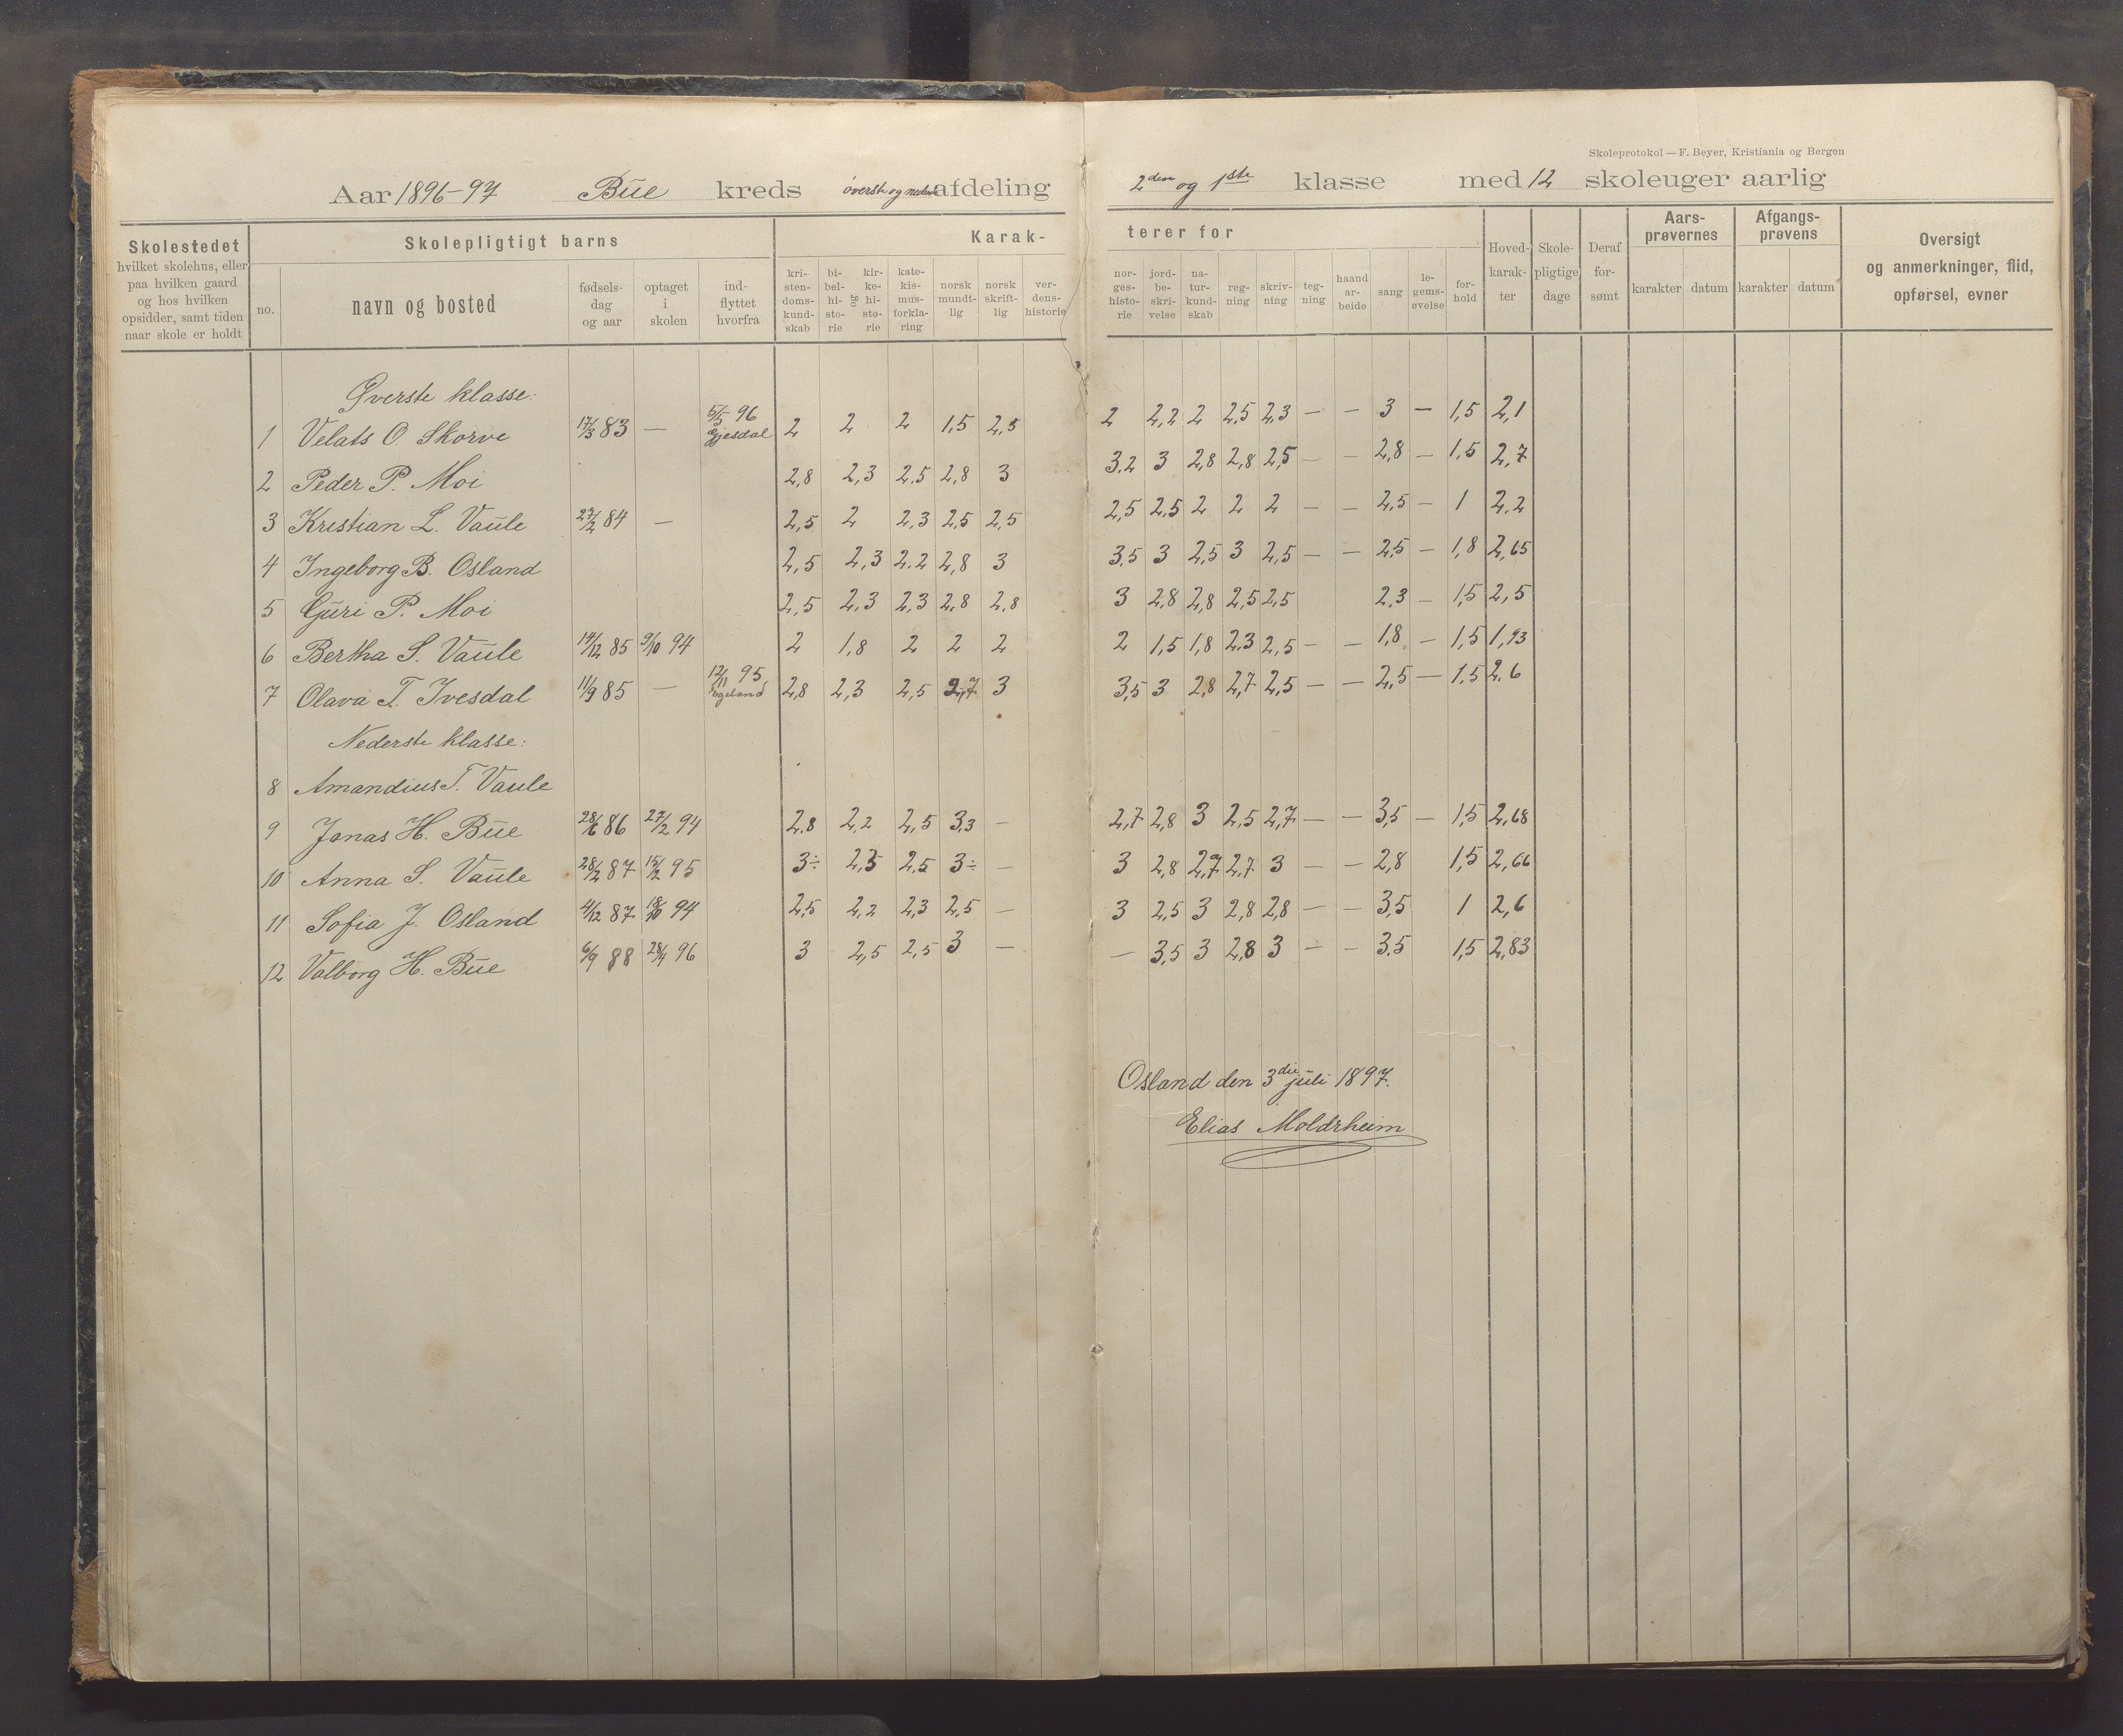 Skoleprotokol — F. Beyer, Kristiania og Bergen
Aar 1896-97 Büe kreds øverste og nederste afdeling 2den og 1ste klasse med 12 skoleuger aarlig
Skolestedet
hvilket skolehus, eller
paa hvilken gaard
og hos hvilken
opsidder, samt tiden
naar skole er holdt
Skolepligtigt barns
no. navn og bosted
fødsels-
dag
og aar
optaget
i
skolen
ind-
flyttet
hvorfra
Karak-
kri-
sten-
doms-
kund-
skab
bi-
bel-
hi-
sto-
rie
og
kir-
ke-
hi-
sto-
rie
kate-
kis-
mus-
forkla-
ring
norsk
mundt-
lig
norsk
skrift-
lig
ver-
dens-
historie
terer for
nor-
ges-
histo-
rie
jord-
be-
skri-
velse
na-
tur-
kund-
skab
reg-
ning
skriv-
ning
teg-
ning
haand
ar-
beide
sang
le-
gems-
øvelse
for-
hold
Hoved-
karak-
ter
Skole-
pligtige
dage
Deraf
for-
sømt
Aars-
prøvernes
karakter datum
Afgangs-
prøvens
karakter datum
Oversigt
og anmerkninger, flid,
opførsel, evner
Øverste klasse:
1 Velats O. Skorve 17/3 83 — 5/5 96 Gjesdal 2 2 2 1,5 2,5 2 2,2 2 2,5 2,3 — — 3 — 1,5 2,1
2 Peder P. Moi 2,8 2,3 2,5 2,8 3 3,2 3 2,8 2,8 2,5 — — 2,8 — 1,5 2,7
3 Kristian L. Vaüle 27/2 84 — 2,5 2 2,3 2,5 2,5 2,5 2,5 2 2 2 — — 2,5 — 1 2,2
4 Ingeborg B. Osland 2,5 2,3 2,2 2,8 3 3,5 3 2,5 3 2,5 — — 2,5 — 1,8 2,65
5 Güri P. Moi 2,5 2,3 2,3 2,8 2,8 3 2,8 2,8 2,5 2,5 2,3 — 1,5 2,5
6 Bertha S. Vaüle 14/12 85 9/10 94 2 1,8 2 2 2 2 1,5 1,8 2,3 2,5 — — 1,8 — 1,5 1,93
7 Olava T. Ivesdal 11/9 85 — 12/11 95 2,8 2,3 2,5 2,7 3 3,5 3 2,8 2,7 2,5 — — 2,5 — 1,5 2,6
Nederste klasse:
8 Amandius T. Vaule
9 Jonas H. Büe 28/6 86 27/2 94 2,8 2,2 2,5 3,3 — 2,7 2,8 3 2,5 2,7 — — 3,5 — 1,5 2,68
10 Anna S. Vaüle 28/2 87 15/2 95 3÷ 2,3 2,5 3÷ — 3 2,8 2,7 2,7 3 — — 2,8 1,5 2,66
11 Sofia J. Osland 4/12 87 18/10 94 2,5 2,2 2,3 2,5 — 3 2,5 3 2,8 2,8 — — 3,5 1 2,6
12 Valborg H. Büe 6/9 88 28/4 96 3 2,5 2,5 3 — — 3,5 3 2,8 3 — — 3,5 1,5 2,83
Osland den 3die jüli 1897.
Elias Moldrheim